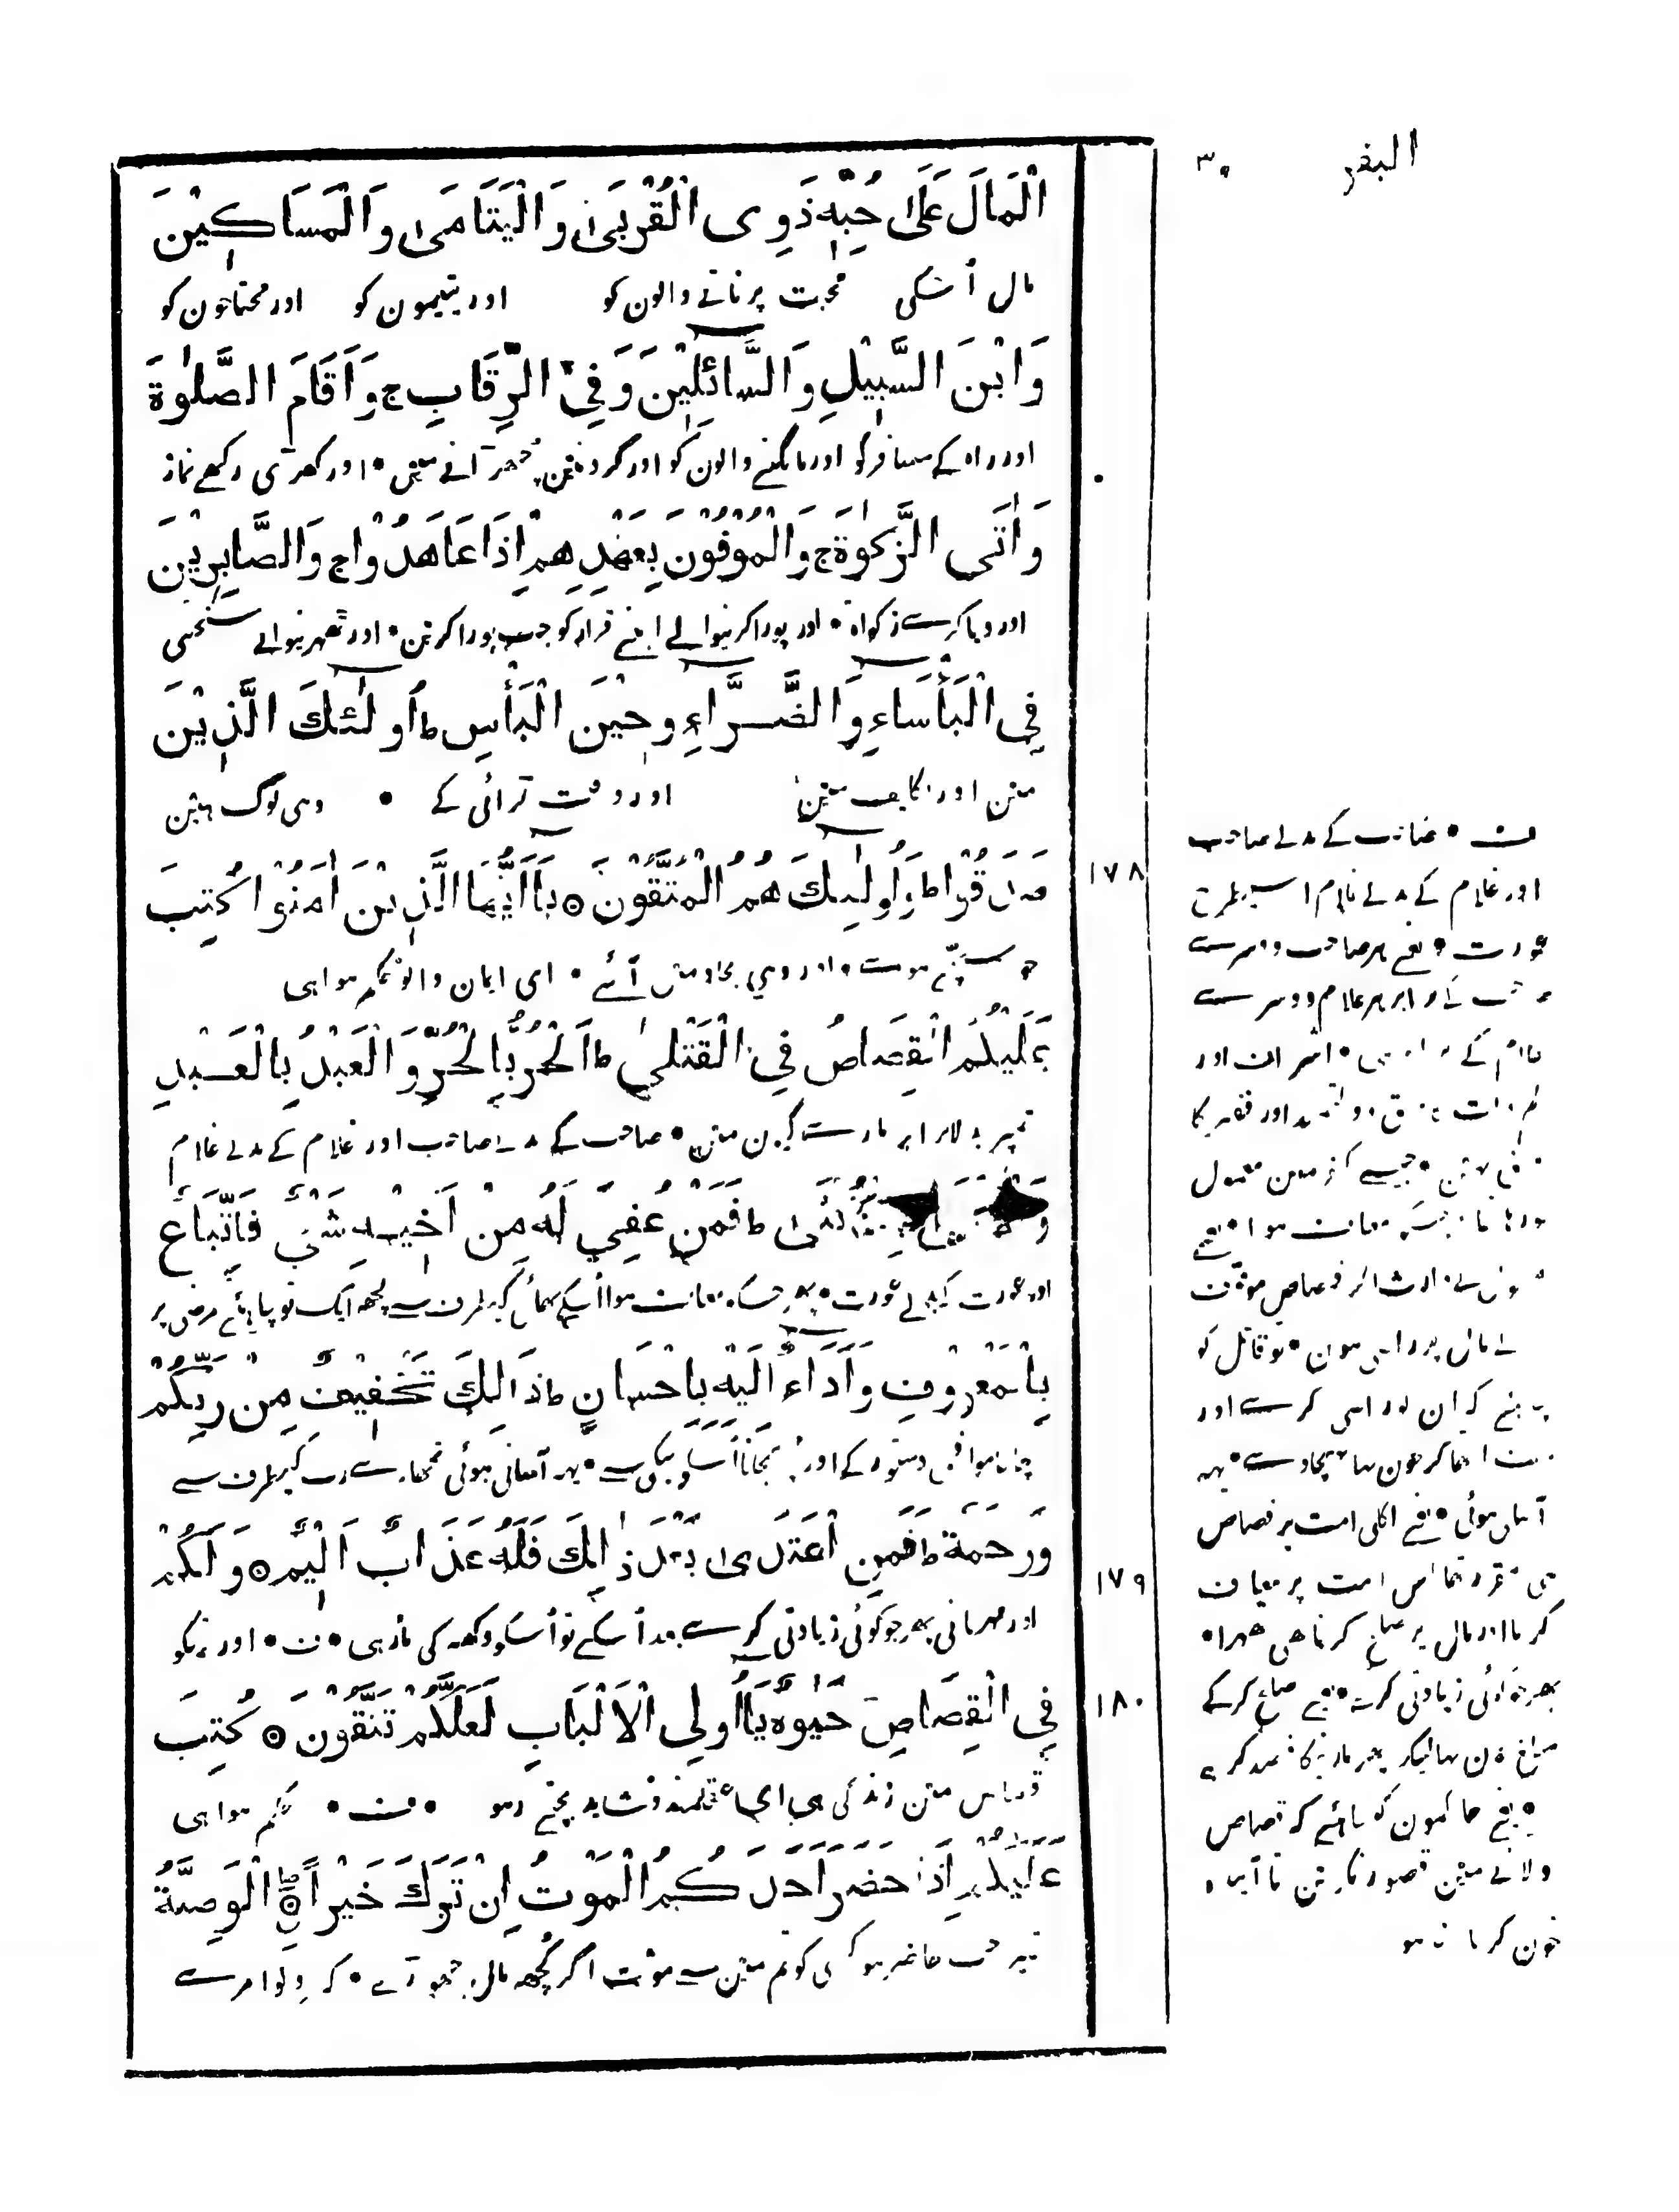 البقر ۳۰
الْمَالَ عَلَىٰ حُبِّهِ ذَوِى الْقُرْبَىٰ وَالْيَتَامَىٰ وَالْمَسَاكِيْنَ
مال اُسکی محبت پر ناتے والون کو اور یتیمون کو اور محتاجون کو
وَابْنَ السَّبِيْلِ وَالسَّائِلِيْنَ وَفِي الرِّقَابِ ج وَاَقَامَ الصَّلٰوةَ
اور راہ کے مسافر کو اور مانگنے والون کو اور گردنین چھڑانے مین • اور کھڑی رکھے نماز
وَاٰتَى الزَّكٰوةَ ج وَالْمُوْفُوْنَ بِعَهْدِهِمْ اِذَا عَاهَدُوْا ج وَالصَّابِرِيْنَ
اور دیا کرے زکواۃ • اور پورا کرنیوالے اپنے قرار کو جب پورا کرین • اور ٹھہرنیوالے سختی
فِي الْبَأْسَاءِ وَالضَّرَّاءِ وَحِيْنَ الْبَأْسِ ط اُولٰئِكَ الَّذِيْنَ
مین اور تکلیف مین اور وقت لڑائی کے • وہی لوگ ہین
صَدَقُوْا ط وَاُولٰئِكَ هُمُ الْمُتَّقُوْنَ ۞ يَااَيُّهَا الَّذِيْنَ اٰمَنُوْا كُتِبَ
۱۷۸
جو سچے ہوے • اور وہی بچاو مین آئے • ای ایمان والو حکم ہوا ہی
عَلَيْكُمُ الْقِصَاصُ فِي الْقَتْلَىٰ ط اَلْحُرُّ بِالْحُرِّ وَالْعَبْدُ بِالْعَبْدِ
تمپر بدلا برابر مارے گیون مین • صاحب کے بدلے صاحب اور غلام کے بدلے غلام
فَمَنْ عُفِيَ لَهُ مِنْ اَخِيْهِ شَيْءٌ فَاتِّبَاعٌ
اور عورت کے بدلے عورت • پھر جسکو معاف ہوا اُسکے بھائی کیطرف سے کچھ ایک تو چاہئے مرضی پر
بِالْمَعْرُوْفِ وَاَدَاءٌ اِلَيْهِ بِاِحْسَانٍ ط ذَالِكَ تَخْفِيْفٌ مِنْ رَبِّكُمْ
چلنا موافق دستور کے اور پہنچانا اُسکو نیکی سے • یہہ آسانی ہوئی تمھارے رب کیطرف سے
وَرَحْمَةٌ ط فَمَنِ اعْتَدَىٰ بَعْدَ ذٰلِكَ فَلَهُ عَذَابٌ اَلِيْمٌ ۞ وَلَكُمْ
۱۷۹
اور مہربانی پھر جو کوئی زیادتی کرے بعد اُسکے تو اُسکو دکھ کی مار ہی • ف • اور تمکو
فِي الْقِصَاصِ حَيٰوةٌ يَااُولِي الْاَلْبَابِ لَعَلَّكُمْ تَتَّقُوْنَ ۞ كُتِبَ
۱۸۰
قصاص مین زندگی ہی ای عقلمندو شاید بچتے رہو • ف • حکم ہوا ہی
عَلَيْكُمْ اِذَا حَضَرَ اَحَدَكُمُ الْمَوْتُ اِنْ تَرَكَ خَيْرًا الْوَصِيَّةُ
جب حاضر ہو کسی کو تم مین سے موت اگر کچھ مال چھوڑے • کہ دلوا مرے
ف • صاحب کے بدلے صاحب
اور غلام کے بدلے غلام اسیطرح
عورت • یعنے ہر صاحب دوسرے
صاحب کے برابر ہر غلام دوسرے
غلام کے برابر ہی • اشراف اور
اور فقیر کا
فرق نہین • جیسے کفر مین معمول
معاف ہوا • یعنے
وارث اگر قصاص موقوف
مال پر راضی ہون • تو قاتل کو
چاہئے کہ ان کو راضی کرے اور
خون بہا پہنچاوے • یہہ
آسانی ہوئی • یعنے اگلی امت پر قصاص
ہی مقرر تھا اس امت پر معاف
کرنا اور مال پر صلح کرنا بھی ٹھہرا •
پھر جو کوئی زیادتی کرے • یعنے صلح کر کے
پھر مارنیکا قصد کرے
• یعنے حاکمون کو چاہئے کہ قصاص
دلانے مین قصور نکرین تا آیندہ
خون کرنا نہ ہو